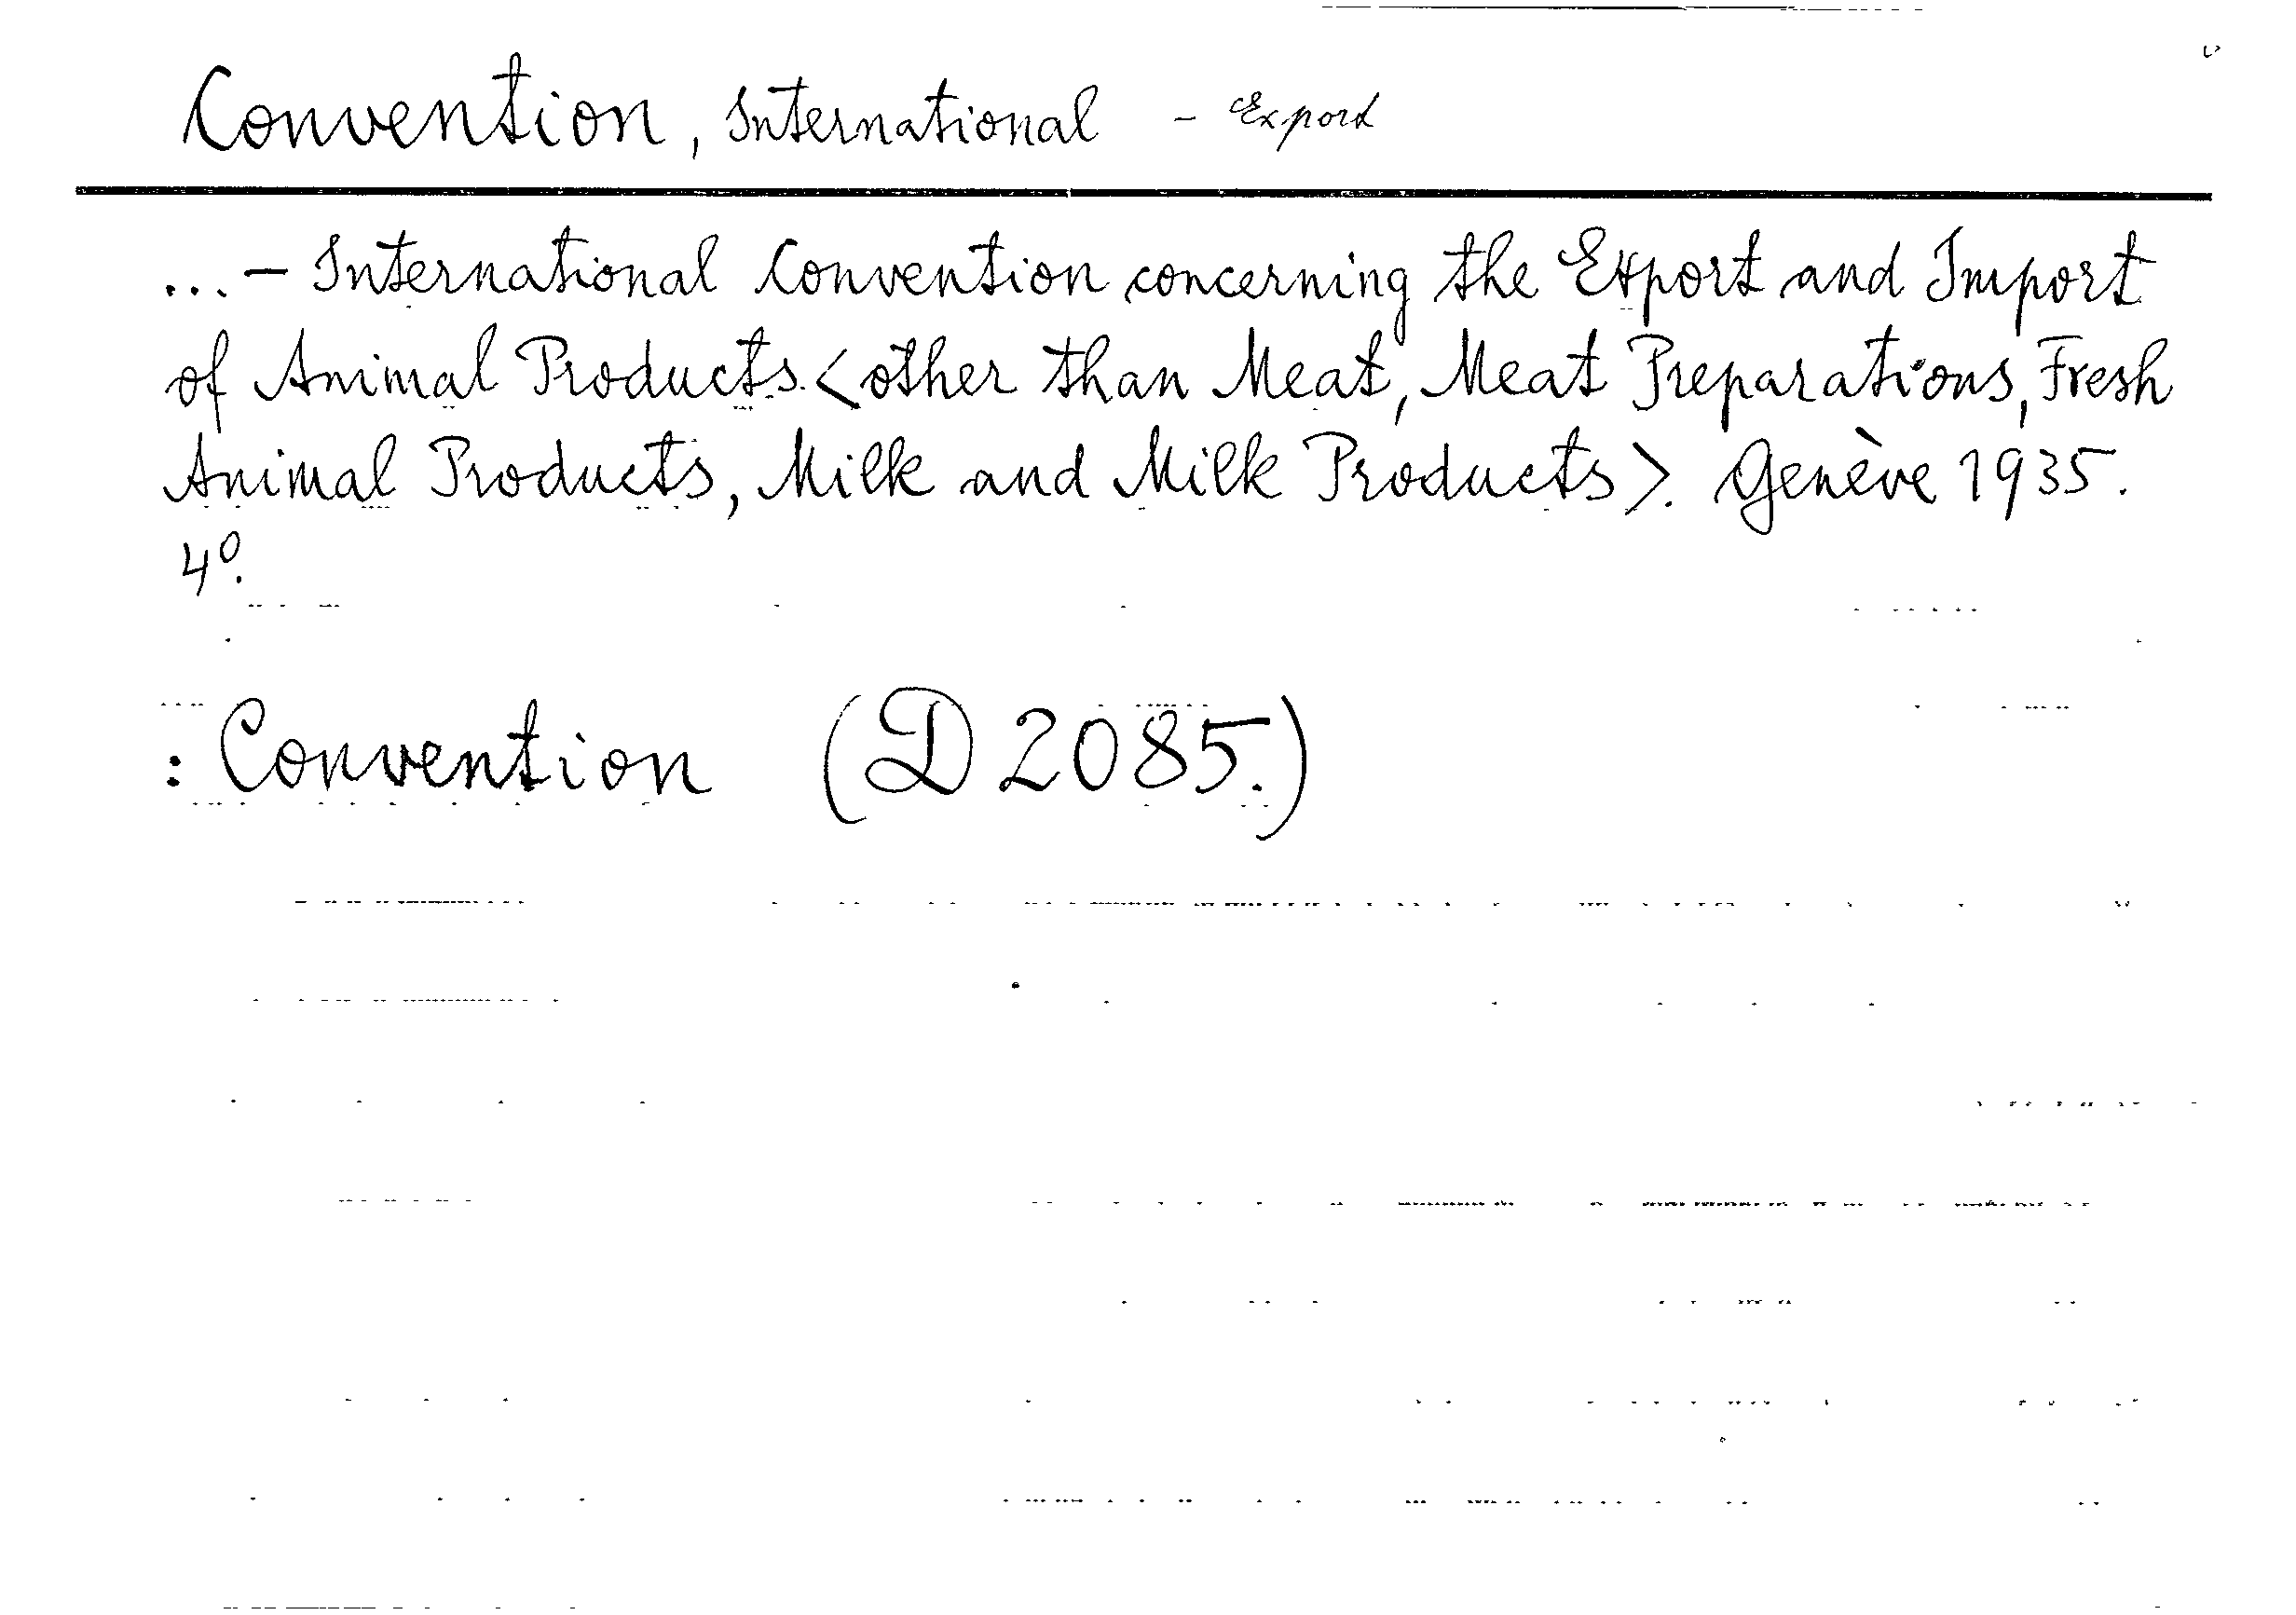 Convention, International - Export
... - International Convention concerning the Export and Import
of Animal Products < other than Meat, Meat Preparations, Fresh
Animal Products, Milk and Milk Products >. Genève 1935.
4º.
: Convention (D 2085.)